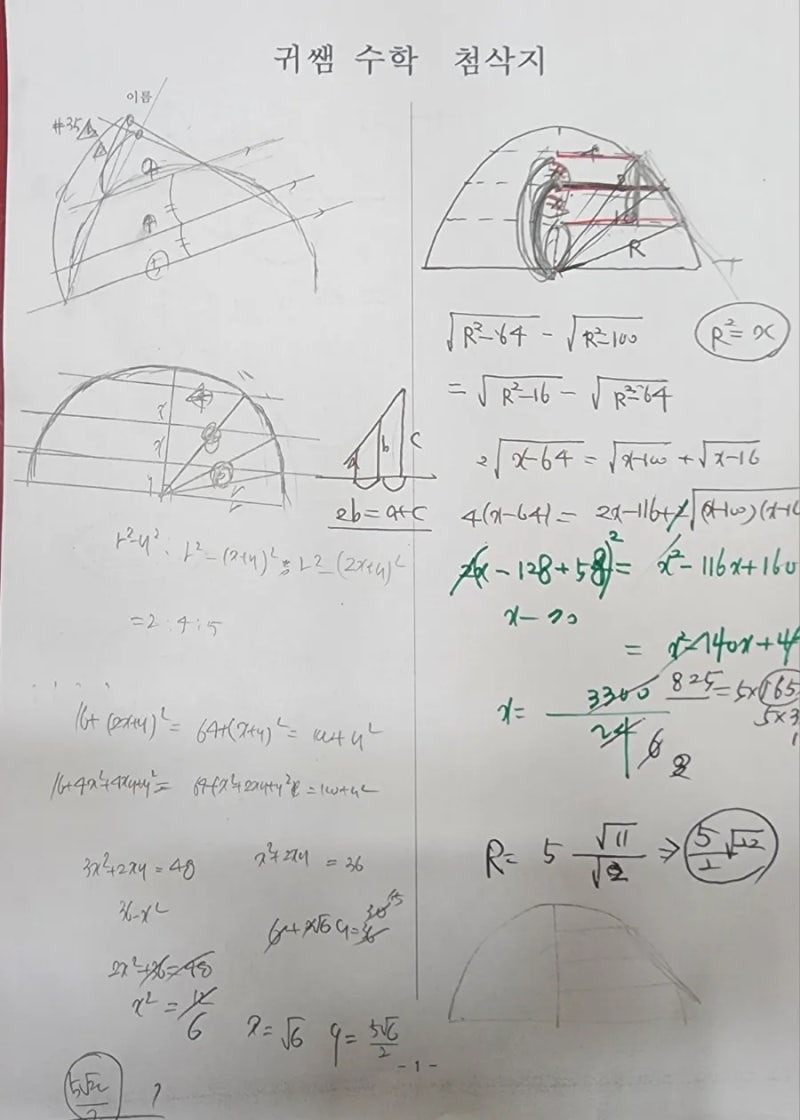 귀쌤 수학 첨삭지
이름
#35
④
④
⑤
x
x
y
r
④
⑧
⑩
a
b
c
2b = a+c
r²-y² : r²-(x+y)² : r²-(2x+y)²
=2:4:5
16+(2x+y)² = 64+(x+y)² = 100+y²
16+4x²+4xy+y² = 64+x²+2xy+y² = 100+y²
3x²+2xy = 48
x²+2xy = 36
36-x²
2x²+36=48
x² = 12
6
6+2√6 y = 36
30
15
x = √6 y = 5√6/2
5√22/2 ?
R
√R²-64 - √R²-100
R² = x
= √R²-16 - √R²-64
2√x-64 = √x-100 + √x-16
4(x-64) = 2x-116+2√(x-100)(x-16
x - 128 + 58)² = x² - 116x + 160
x - 70
= x² - 140x + 4
x = 3300/24
6
2
825 = 5×165
5×3
R = 5 √11/√2 ⇒ 5/2 √22
- 1 -